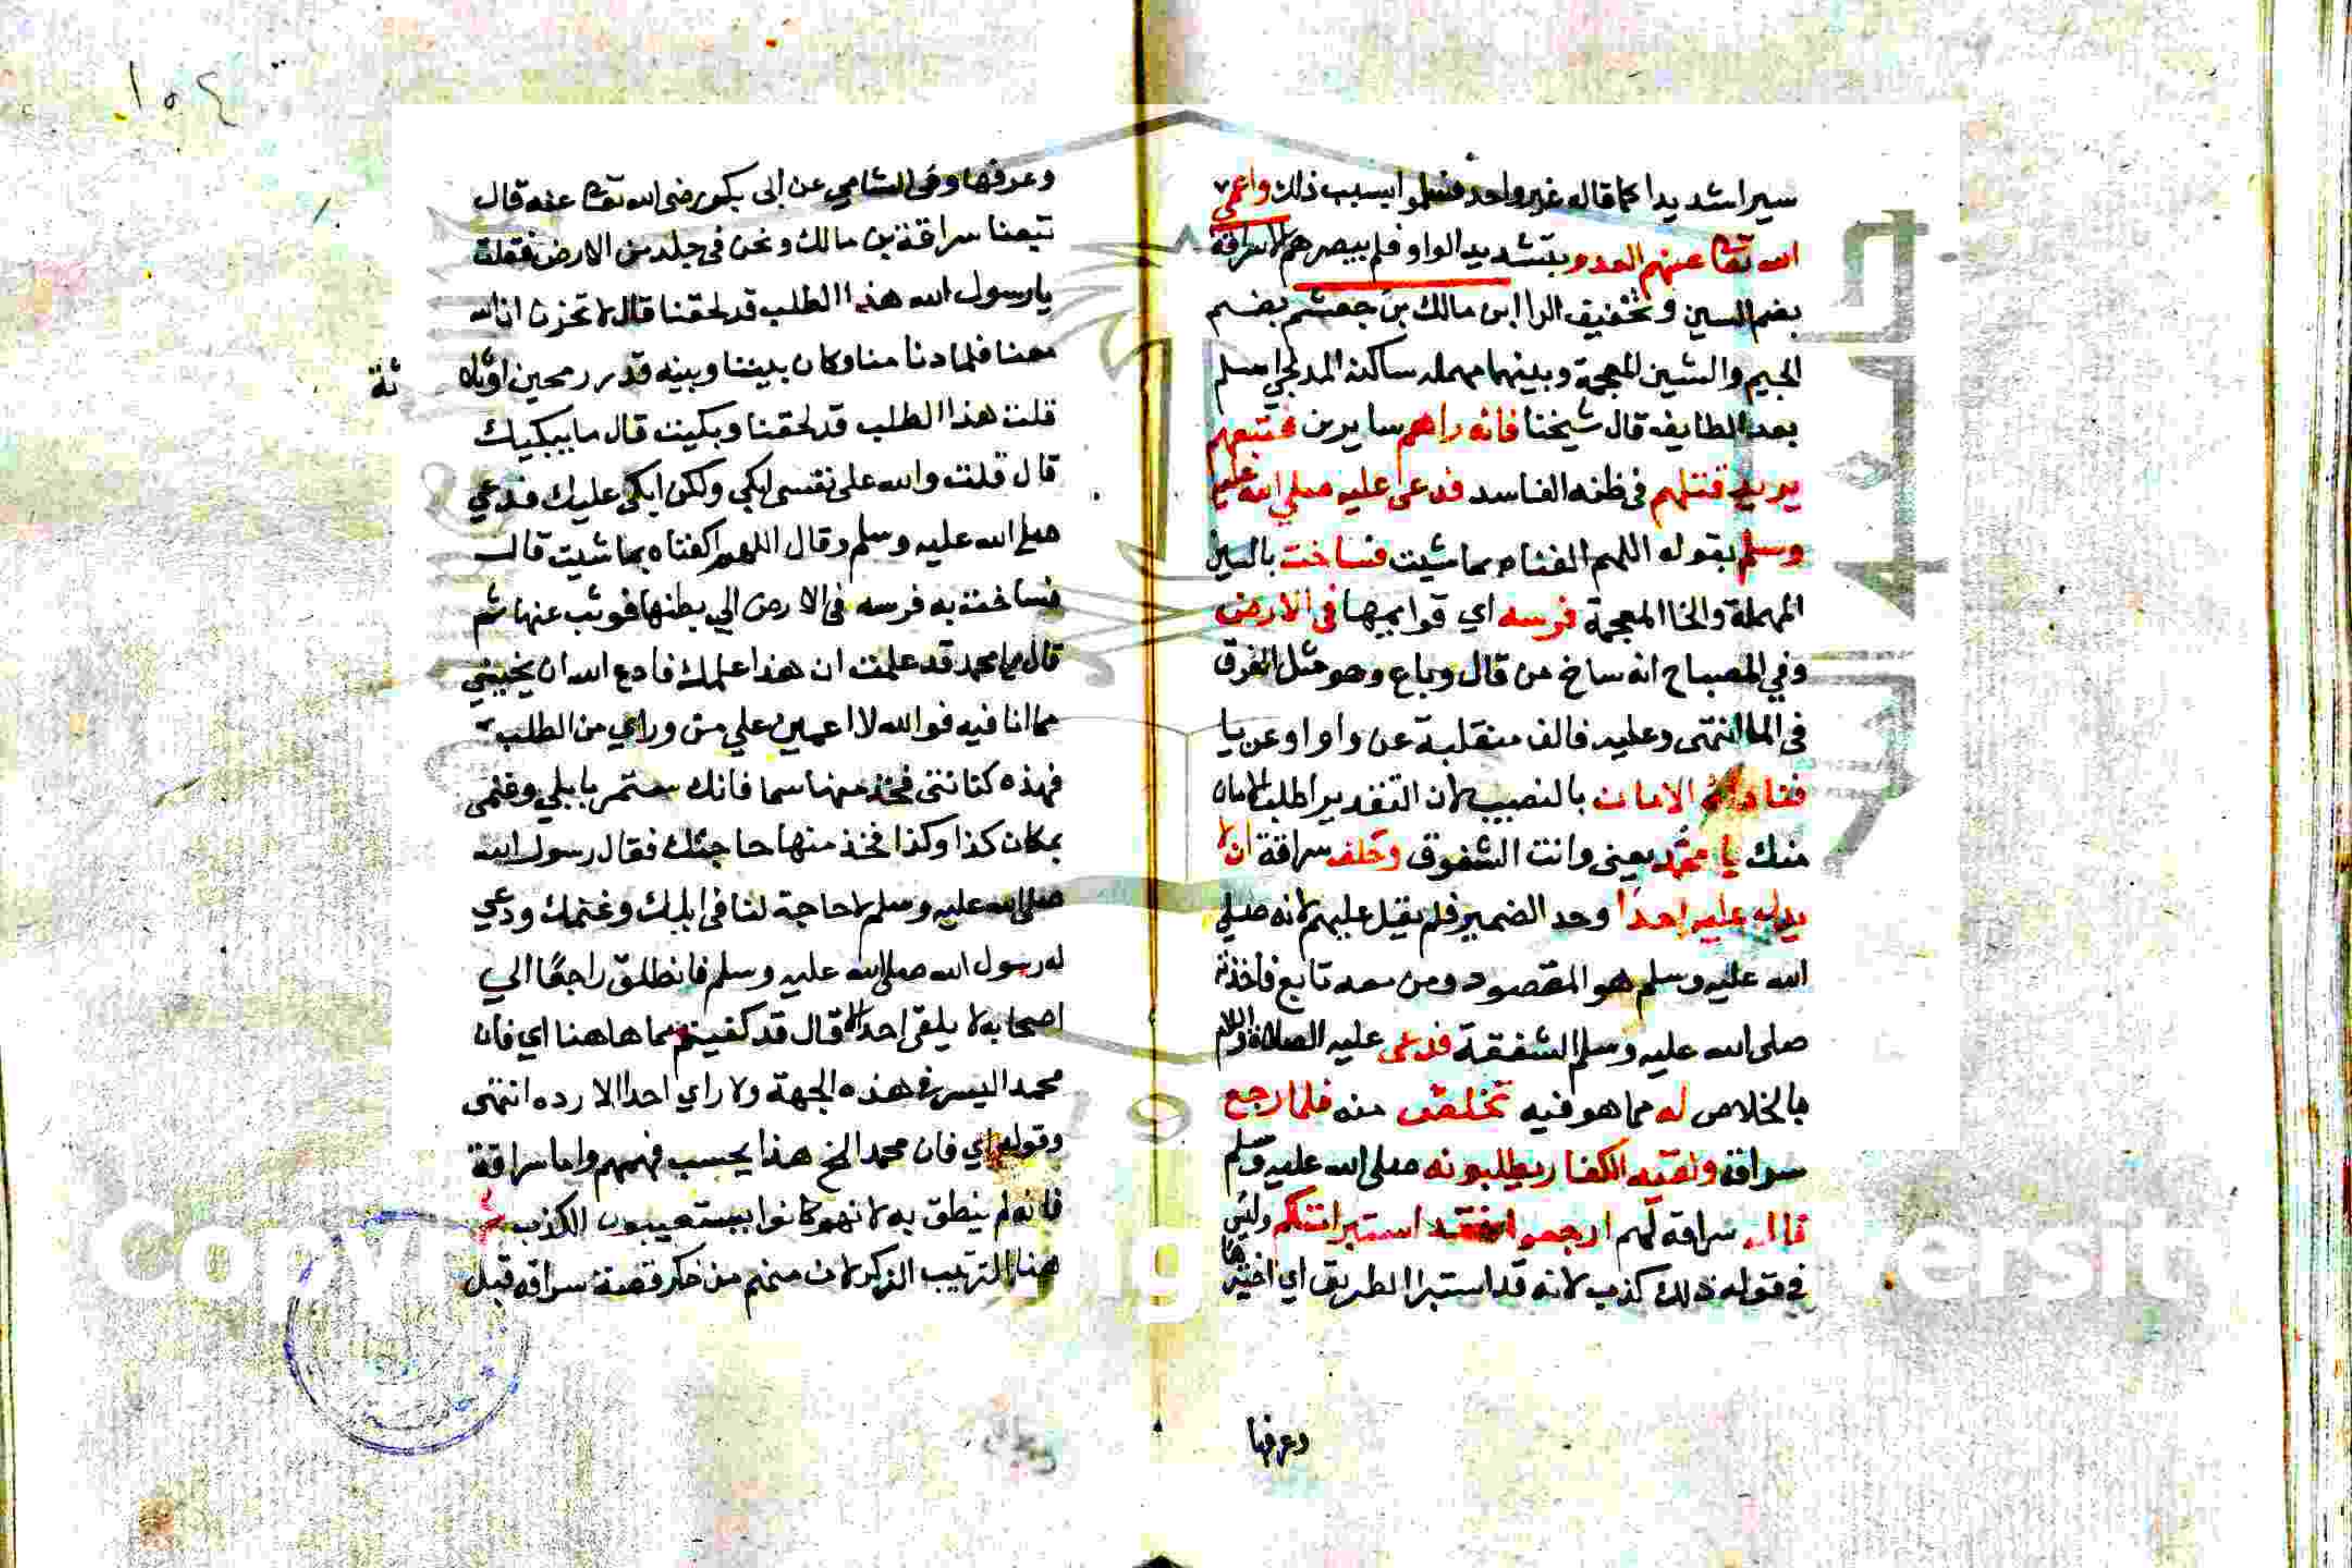 سيرا شديدا كما قاله غير واحد فسلموا بسبب ذلك واعمى
الله تعا عنهم العدو بتشديد الواو فلم يبصرهم الا سراقة
بضم السين وتخفيف الرا ابن مالك بن جعشم بضم
الجيم والشين المعجمة وبينهما مهمله ساكنة المدلجي اسلم
بعد الطايف قال شيخنا فانه راهم سايرين فتبعهم
يريد قتلهم في ظنه الفاسد فدعى عليه صلي الله عليه
وسلم بقوله اللهم اكفناه بما شيت فساخت بالسين
المهملة والخا المعجمة فرسه اي قوايمها في الارض
وفي المصباح انه ساخ من قال وباع وهو مثل الغرق
في الما انتهى وعليه فالف منقلبة عن واو او عن يا
فناداه الامان بالنصب لان التقدير اطلب الامان
منك يا محمد يعنى وانت الشفوق وحلف سراقة ان لا
يدل عليه احدا وحد الضمير فلم يقل عليهم لانه صلي
الله عليه وسلم هو المقصود ومن معه تابع فاخذته
صلى الله عليه وسلم الشفقة فدعى عليه الصلاة والسلام
بالخلاص له مما هو فيه تخلص منه فلما رجع
سراقة ولقيه الكفار يطلبونه صلى الله عليه وسلم
قال سراقة لهم ارجعوا فقد استبرات لكم وليس
في قوله ذلك كذب لانه قد استبرا الطريق اي اختبرها
وعرفها
١٥٤
وعرفها وفى الشامي عن ابى بكر رضى الله تعا عنه قال
تبعنا سراقة بن مالك ونحن في جلد من الارض فقلت
يا رسول الله هذا الطلب قد لحقنا قال لا تحزن ان الله
معنا فلما دنا منا وكان بيننا وبينه قدر رمحين او ثلا ثة
قلت هذا الطلب قد لحقنا وبكيت قال ما يبكيك
قال قلت والله على نفسى ابكي ولكن ابكى عليك فدعي
صلى الله عليه وسلم وقال اللهم اكفناه بما شيت قال
فساخت به فرسه فى الارض الي بطنها فوثب عنها ثم
قال يا محمد قد علمت ان هذا عملك فادع الله ان ينجيني
مما انا فيه فوالله لا اعمين علي من وراي من الطلب
فهذه كنانتى فخذ منها سهما فانك ستمر بابلي وغنمى
بمكان كذا وكذا فخذ منها حاجتك فقال رسول الله
صلى الله عليه وسلم لا حاجة لنا فى ابلك وغنمك ودعي
له رسول الله صلى الله عليه وسلم فانطلق راجعا الي
اصحابه لا يلقى احدا الا قال قد كفيتم ما هاهنا اي فان
محمدا ليس في هذه الجهة ولا راي احدا الا رده انتهى
وقوله اي فان محمدا الخ هذا بحسب فهمهم واما سراقة
فانه لم ينطق به لانهم كانوا يستعيبون الكذب ثم
هنا لترتيب الذكر لان منهم من ذكر قصة سراقة قبل